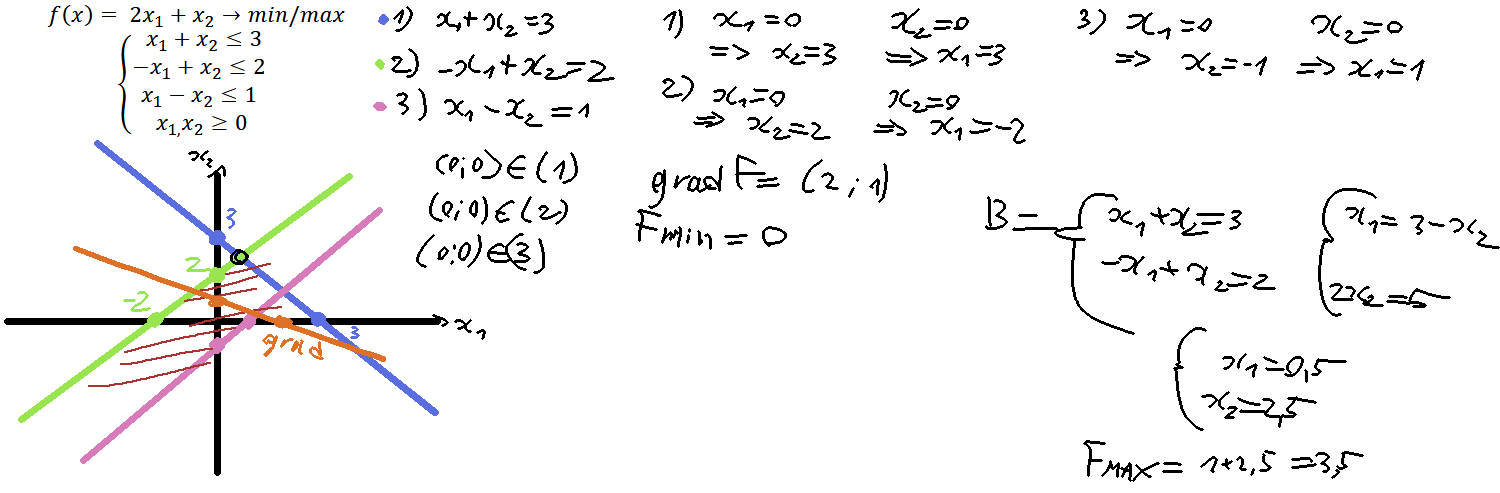 f(x) = 2x₁ + x₂ → min/max
x₁ + x₂ ≤ 3
−x₁ + x₂ ≤ 2
x₁ − x₂ ≤ 1
x₁,x₂ ≥ 0
1) x₁+x₂=3
2) −x₁+x₂=2
3) x₁−x₂=1
(0;0)∈(1)
(0;0)∈(2)
(0;0)∈(3)
1) x₁=0 x₂=0
=> x₂=3 => x₁=3
2) x₁=0 x₂=0
=> x₂=2 => x₁=−2
3) x₁=0 x₂=0
=> x₂=−1 => x₁=1
grad F= (2;1)
Fmin = 0
B = x₁+x₂=3
−x₁+x₂=2
x₁=3−x₂
2x₂=5
x₁=0,5
x₂=2,5
FMAX= 1+2,5 =3,5
x₂
3
2
−2
3
x₁
grad